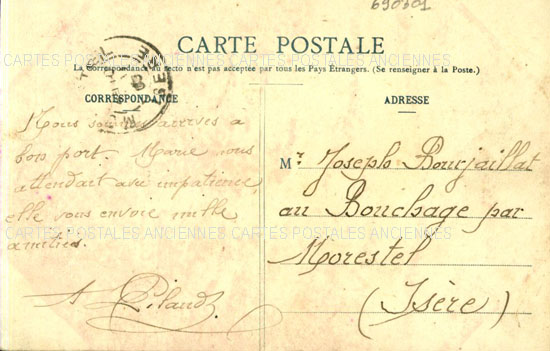 690301
CARTE POSTALE
La Correspondance au recto n'est pas acceptée par tous les Pays Étrangers. (Se renseigner à la Poste.)
CORRESPONDANCE
Nous sommes arrivés à
bon port. Marie vous
attendait avec impatience
elle vous envoie mille
amitiés.
A Pilaud
ADRESSE
Mr Joseph Bourjaillat
au Bouchage par
Morestel
(Isère)
CARTES POSTALES ANCIENNES CARTES POSTALES ANCIENNES
CARTES POSTALES ANCIENNES CARTES POSTALES ANCIENNES